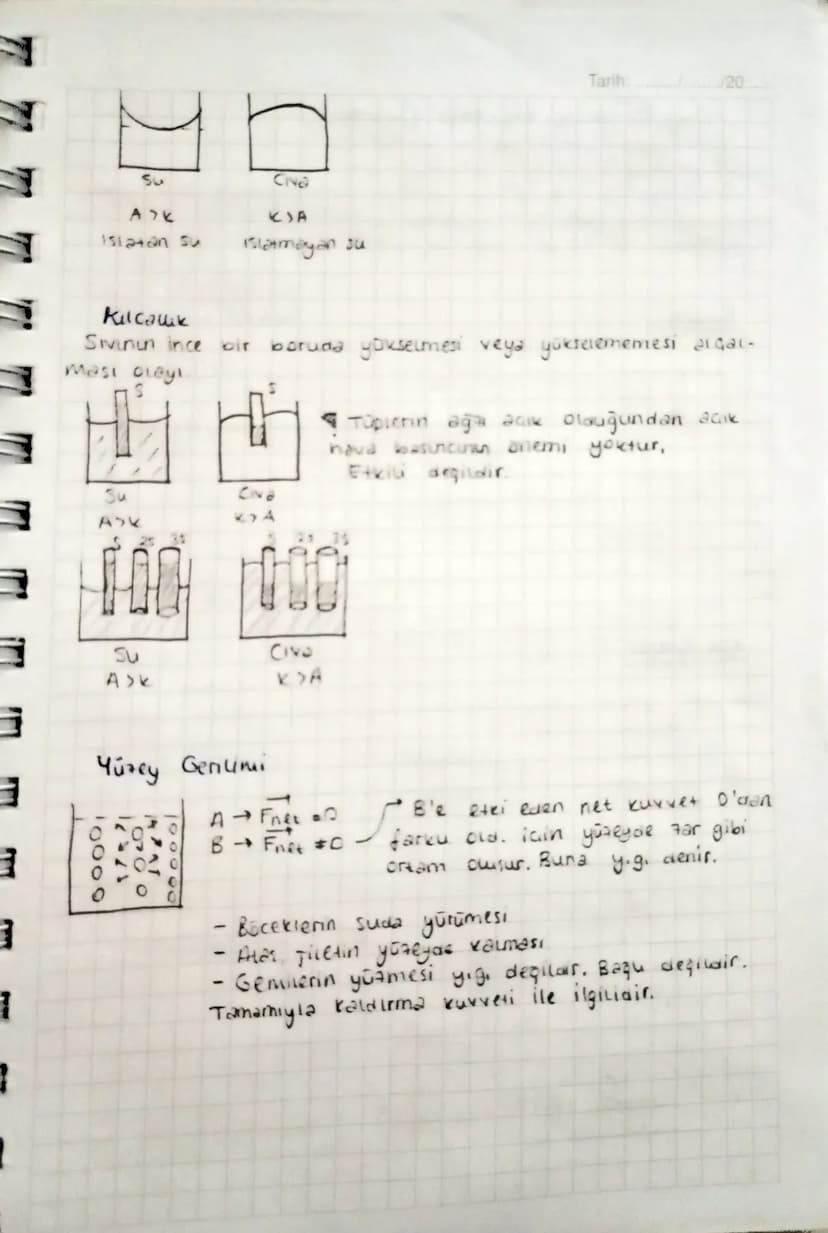 Tarih: ....../....../20......
Su Civa
A>K K>A
ıslatan su ıslatmayan su
Kılcallık
Sıvının ince bir boruda yükselmesi veya yükselememesi alçal-
ması olayı
S S
Tüplerin ağzı açık olduğundan açık
hava basıncının önemi yoktur,
Etkili değildir.
Su Civa
A>K K>A
S 2S 3S S 2S 3S
Su Civa
A>K K>A
Yüzey Gerilimi
A → Fnet = 0
B → Fnet ≠ 0
B'e etki eden net kuvvet 0'dan
farklı old. için yüzeyde zar gibi
ortam oluşur. Buna y.g. denir.
- Böceklerin suda yürümesi
- yüzeyde kalması
- Gemilerin yüzmesi y.g. değildir. Bağlı değildir.
Tamamıyla kaldırma kuvveti ile ilgilidir.